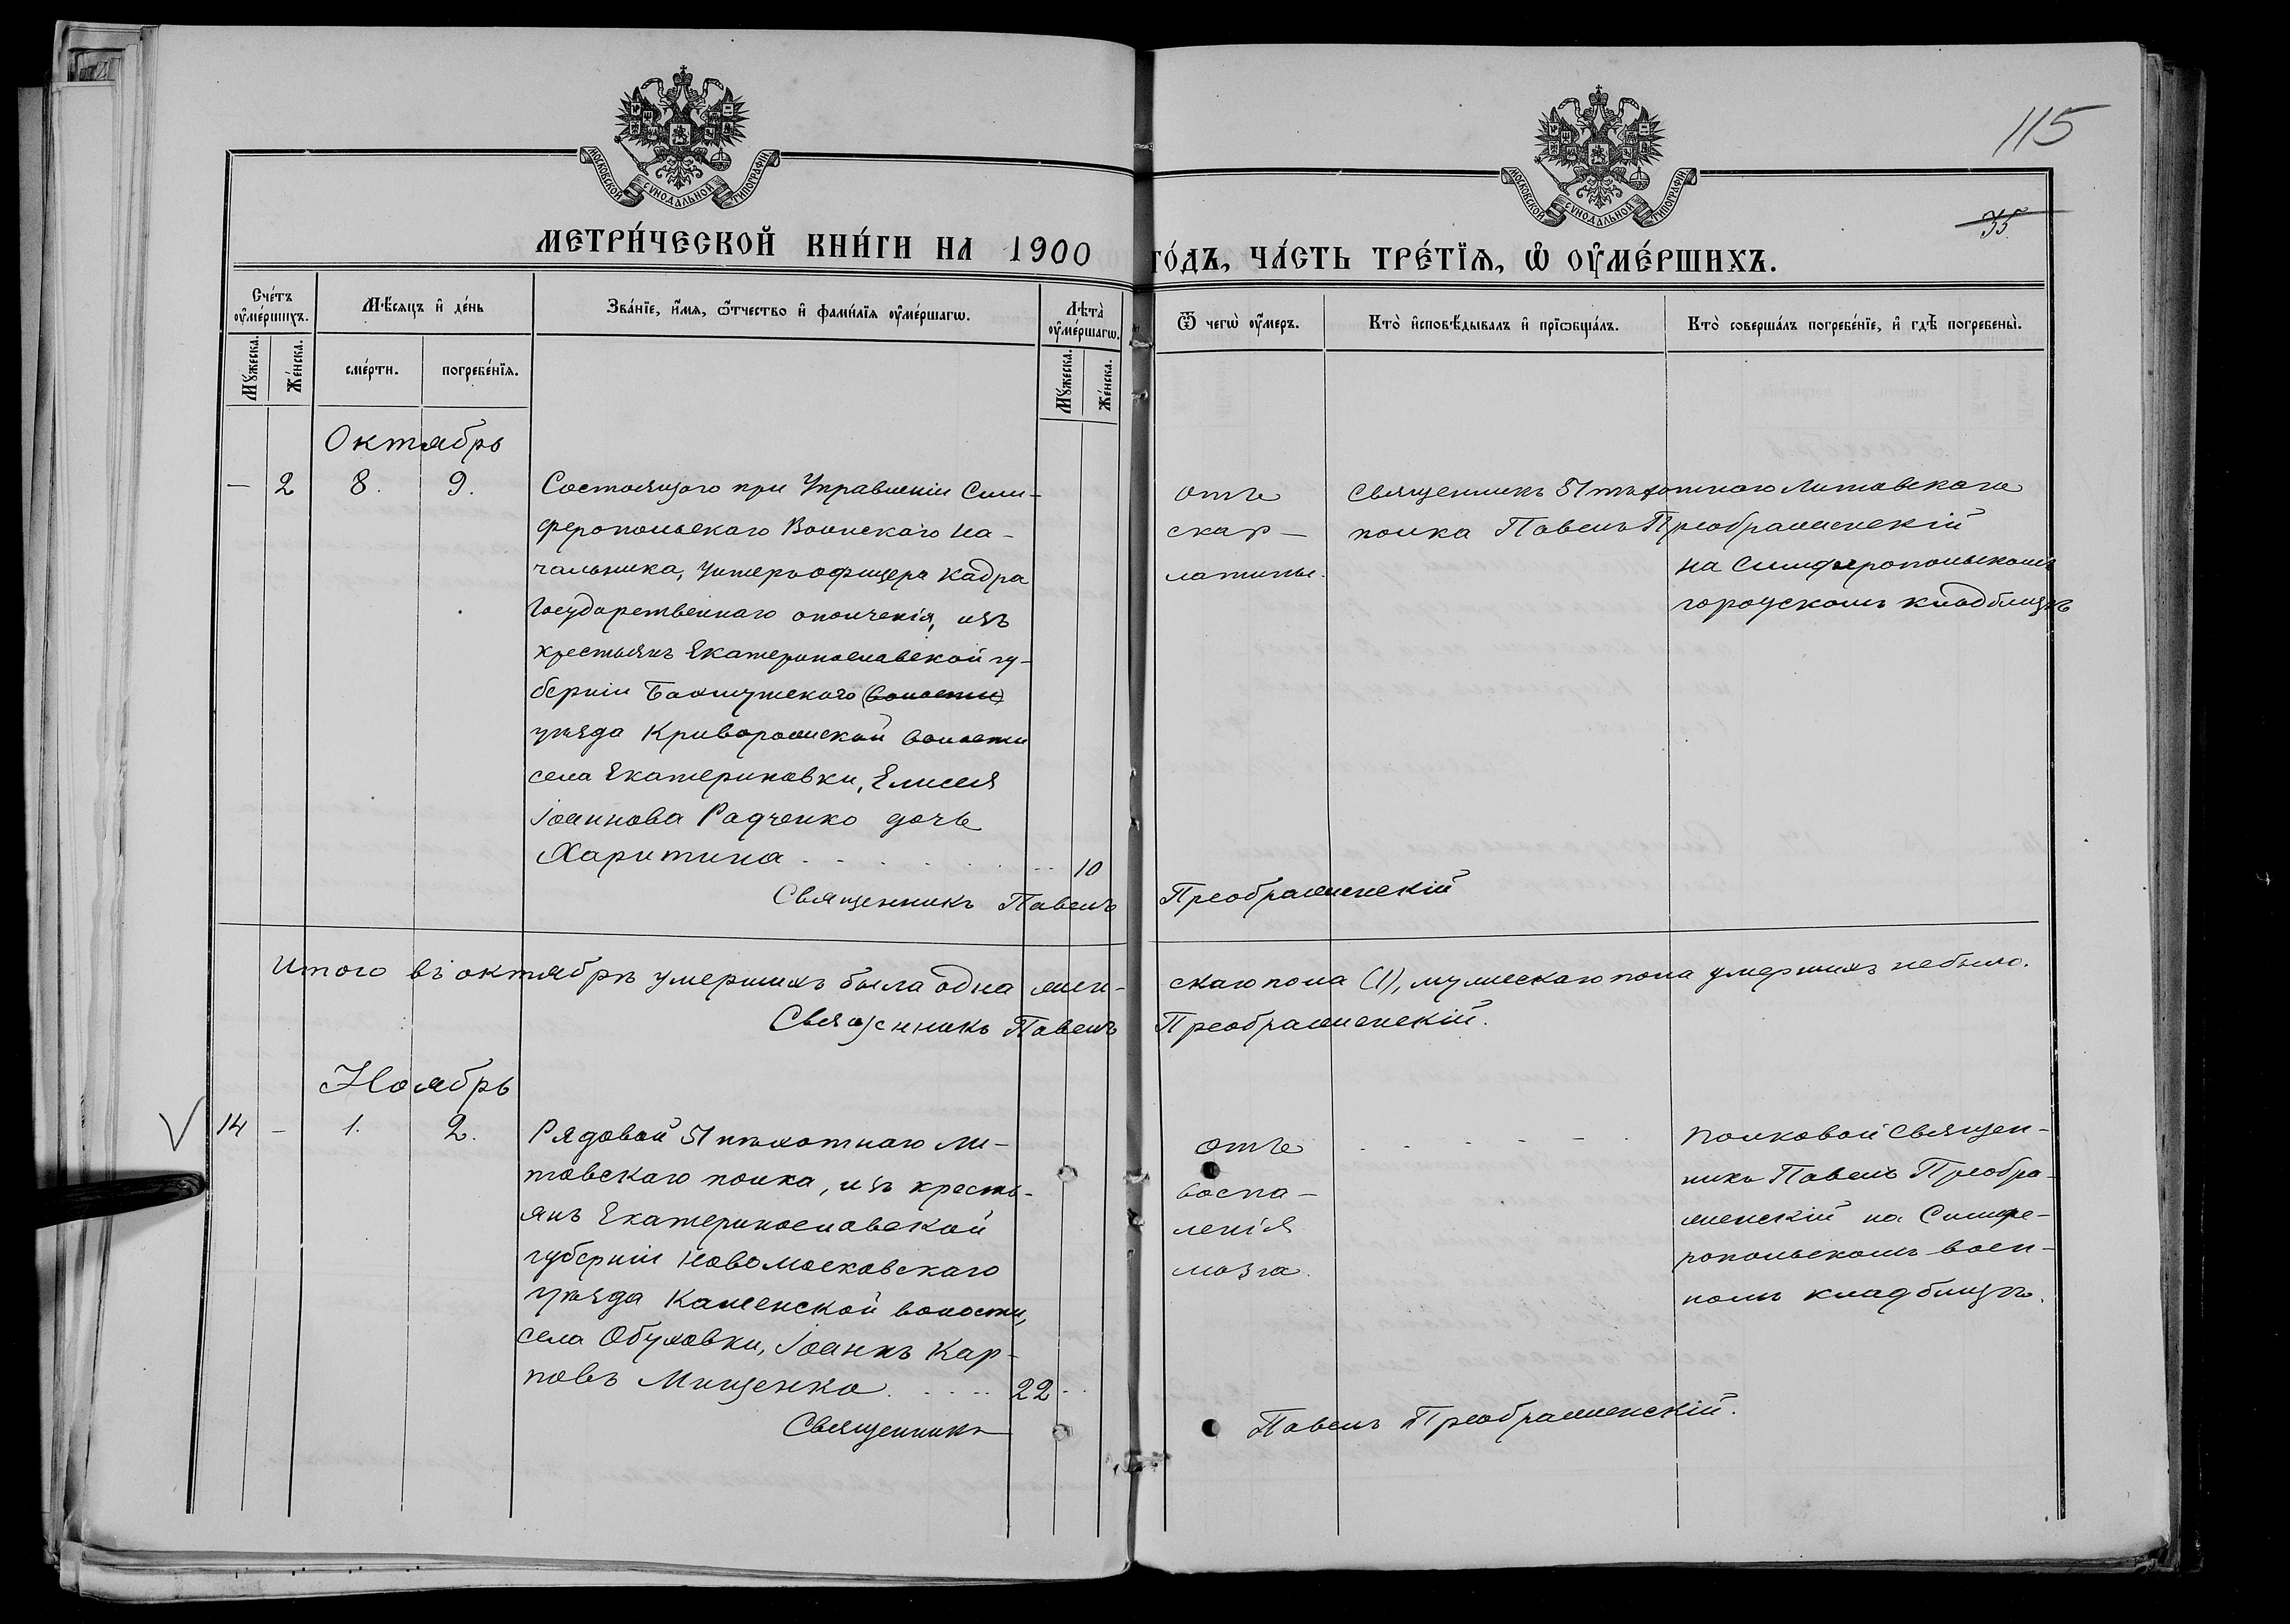 115
35
МОСКОВСКОЙ СѴНОДАЛЬНОЙ ТИПОГРАФІИ
МОСКОВСКОЙ СѴНОДАЛЬНОЙ ТИПОГРАФІИ
МЕТРИ́ЧЕСКОЙ КНИ́ГИ НА 1900 ГО́ДЪ, ЧА́СТЬ ТРЕ́ТЇѦ, Ѡ҆ ОУ҆МЕ́РШИХЪ.
Сче́тъ оу҆ме́ршихъ.
Мꙋ́жеска.
Же́нска.
Мѣ́сяцъ и҆ де́нь
сме́рти.
погребе́нїѧ.
Зва́нїе, и҆́мѧ, ѻ҆́тчество и҆ фами́лїѧ оу҆ме́ршагѡ.
Лѣта̀ оу҆ме́ршагѡ.
Мꙋ́жеска.
Же́нска.
Ѿ чегѡ̀ оу҆́меръ.
Кто̀ и҆сповѣ́дывалъ и҆ прїѡбща́лъ.
Кто̀ соверша́лъ погребе́нїе, и҆ гдѣ̀ погребены̀.
Октябрь
— 2 8. 9.
Состоящаго при Управленіи Сим-
феропольскаго Воинскаго На-
чальника, Унтеръ офицера Кадра
Государственнаго ополченія, изъ
крестьянъ Екатеринославской гу-
берніи Бахмутскаго (волости)
уѣзда Криворожской волости
села Екатериновки, Елисея
Іоаннова Радченко дочь
Харитина 10
отъ
скар-
латины.
Священникъ 51 пѣхотнаго Литовскаго
полка Павелъ Преображенскій
на Симферопольскомъ
городскомъ кладбищѣ
Священникъ Павелъ Преображенскій
Итого въ октябрѣ умершихъ была одна жен-скаго пола (1), мужескаго пола умершихъ не было.
Священникъ Павелъ Преображенскій.
Ноябрь
14 — 1. 2.
Рядовой 51 пѣхотнаго Ли-
товскаго полка, изъ кресть-
янъ Екатеринославской
губерніи Новомосковскаго
уѣзда Каменской волости,
села Обуховки, Іоаннъ Кар-
повъ Мищенко 22
отъ
воспа-
ленія
мозга.
Полковой Священ-
никъ Павелъ Преобра-
женскій на Симфе-
ропольскомъ воен-
номъ кладбищѣ.
Священникъ Павелъ Преображенскій.